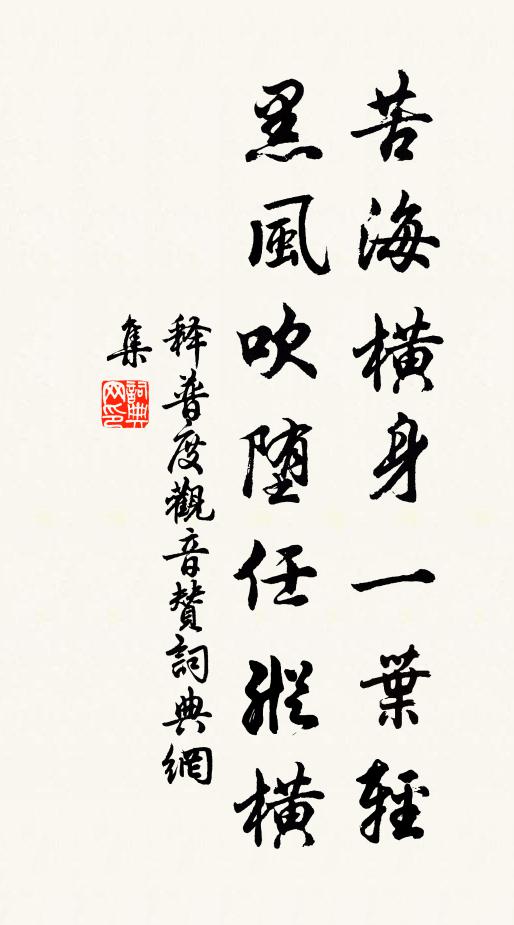 苦海橫身一葉輕
黑風吹堕任縱橫
释普度觀音贊詞典網
集
詞典
网印